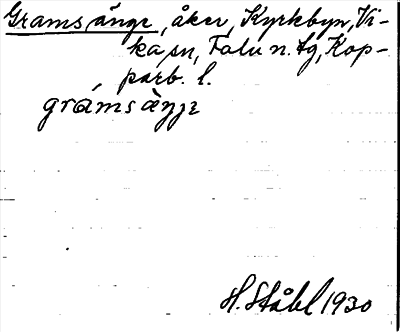 Gramsänge, åker, Kyrkbyn, Vi-
ka sn, Falu n. tg, Kop-
parb. l.
grámsàŋŋe
H. Ståhl 1930